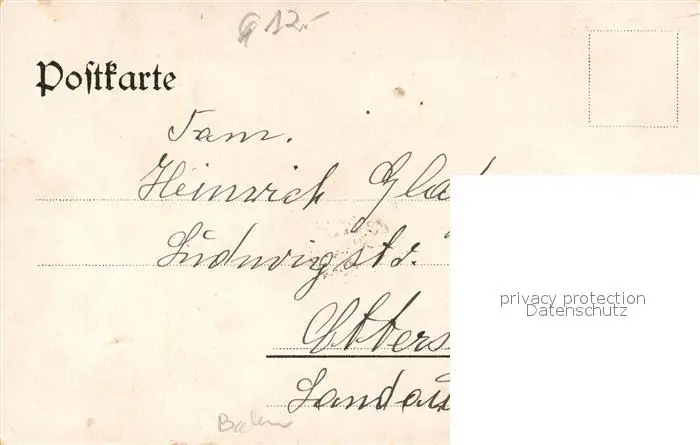 12.-
Postkarte
Fam.
Heinrich Gla
Ludwigstr.
Otters
Landau
privacy protection
Datenschutz